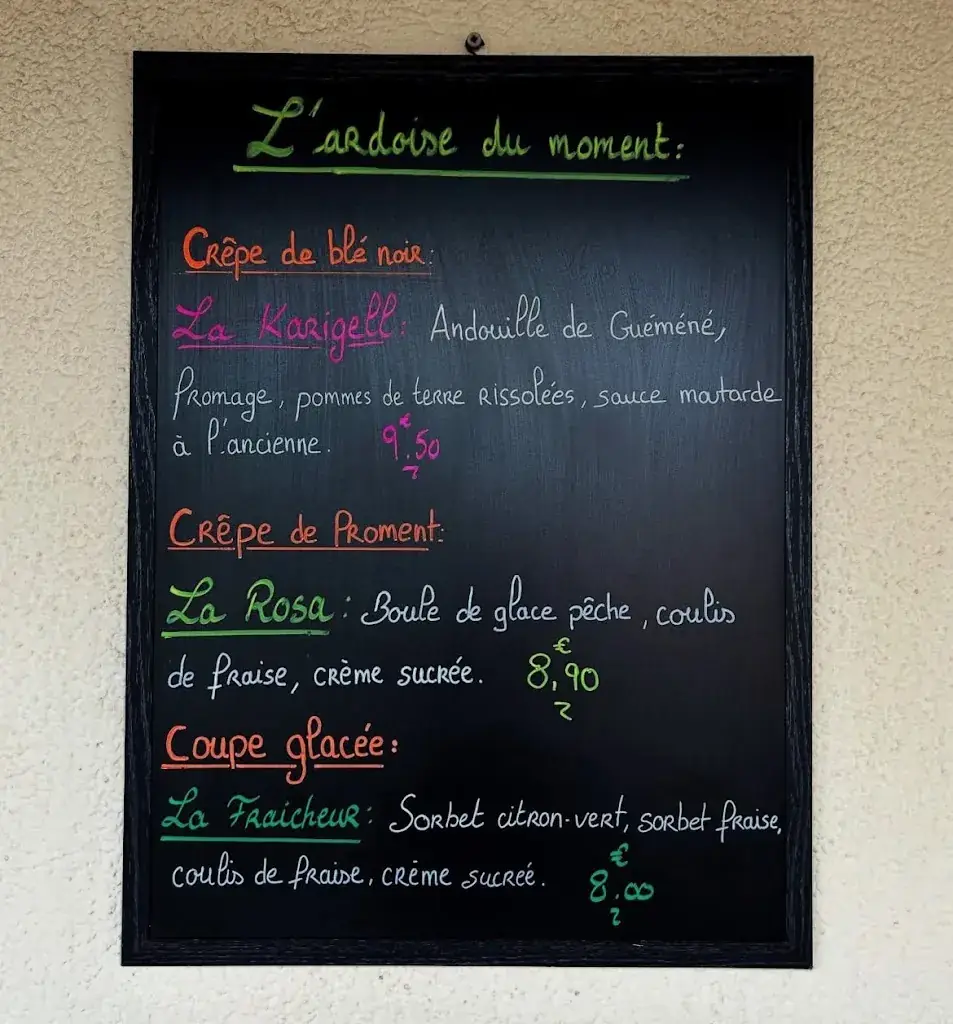 L'ardoise du moment:
Crêpe de blé noir:
La Karigell: Andouille de Guéméné,
fromage, pommes de terre rissolées, sauce moutarde
à l'ancienne. 9.50 €
Crêpe de froment:
La Rosa: Boule de glace pêche, coulis
de fraise, crème sucrée. 8,90 €
Coupe glacée:
La Fraicheur: Sorbet citron-vert, sorbet fraise,
coulis de fraise, crème sucreé. 8.00 €